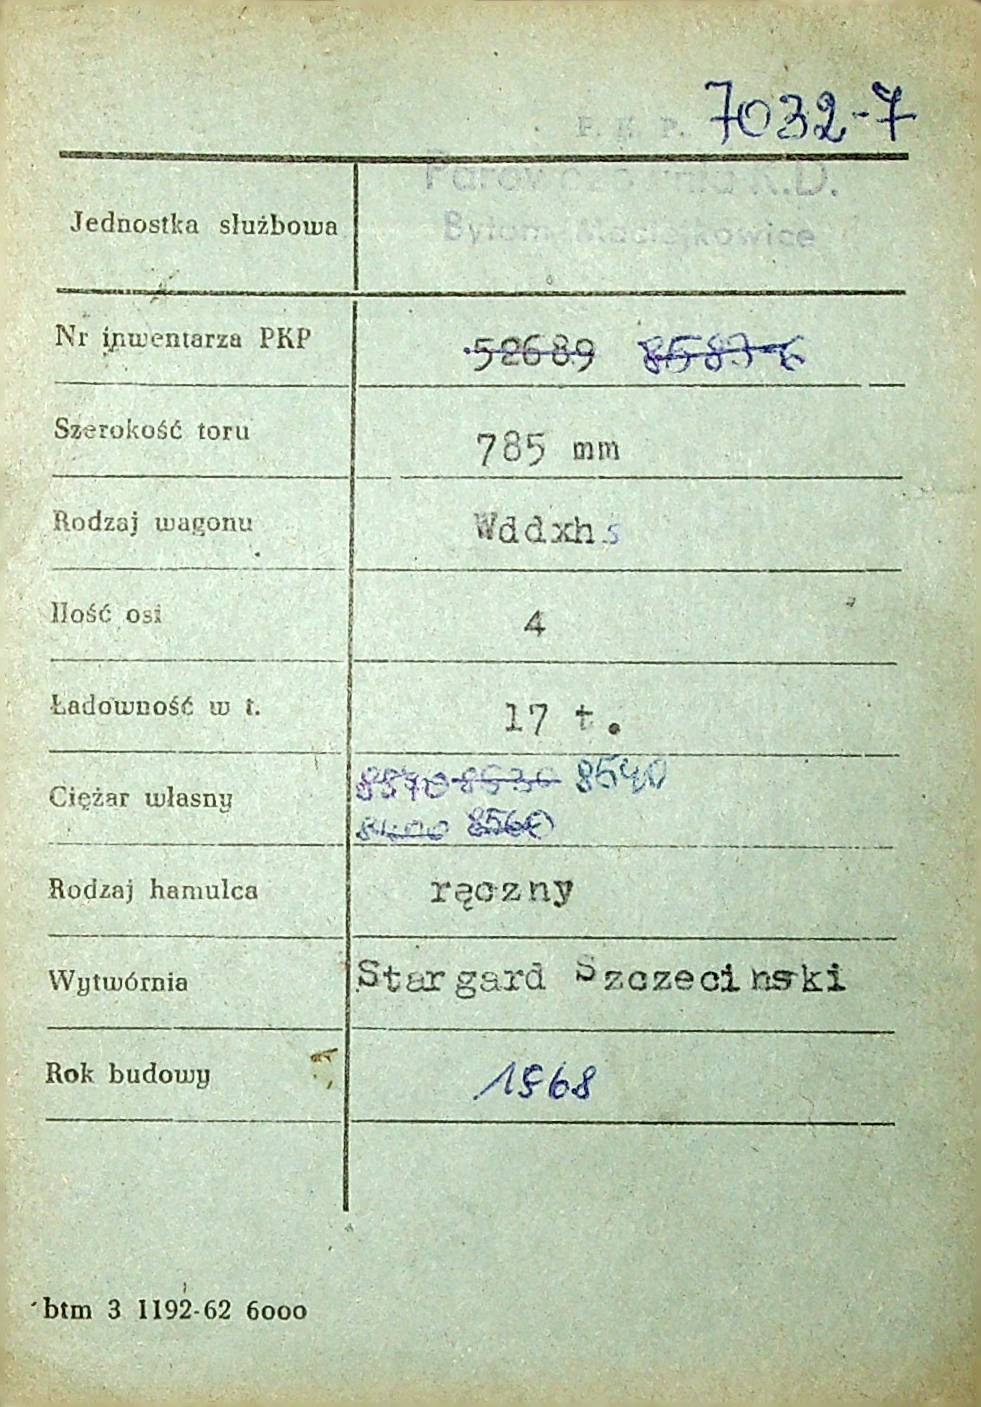 7032-7
P. K. P.
Parowozownia K.D.
Jednostka służbowa
Bytom Maciejkowice
Nr inwentarza PKP 52689 8583-6
Szerokość toru 785 mm
Rodzaj wagonu Wddxhs
Ilość osi 4
Ładowność w t. 17 t.
Ciężar własny 8570 8530 8540
8560
Rodzaj hamulca ręczny
Wytwórnia Stargard Szczecinski
Rok budowy 1968
btm 3 1192-62 6000